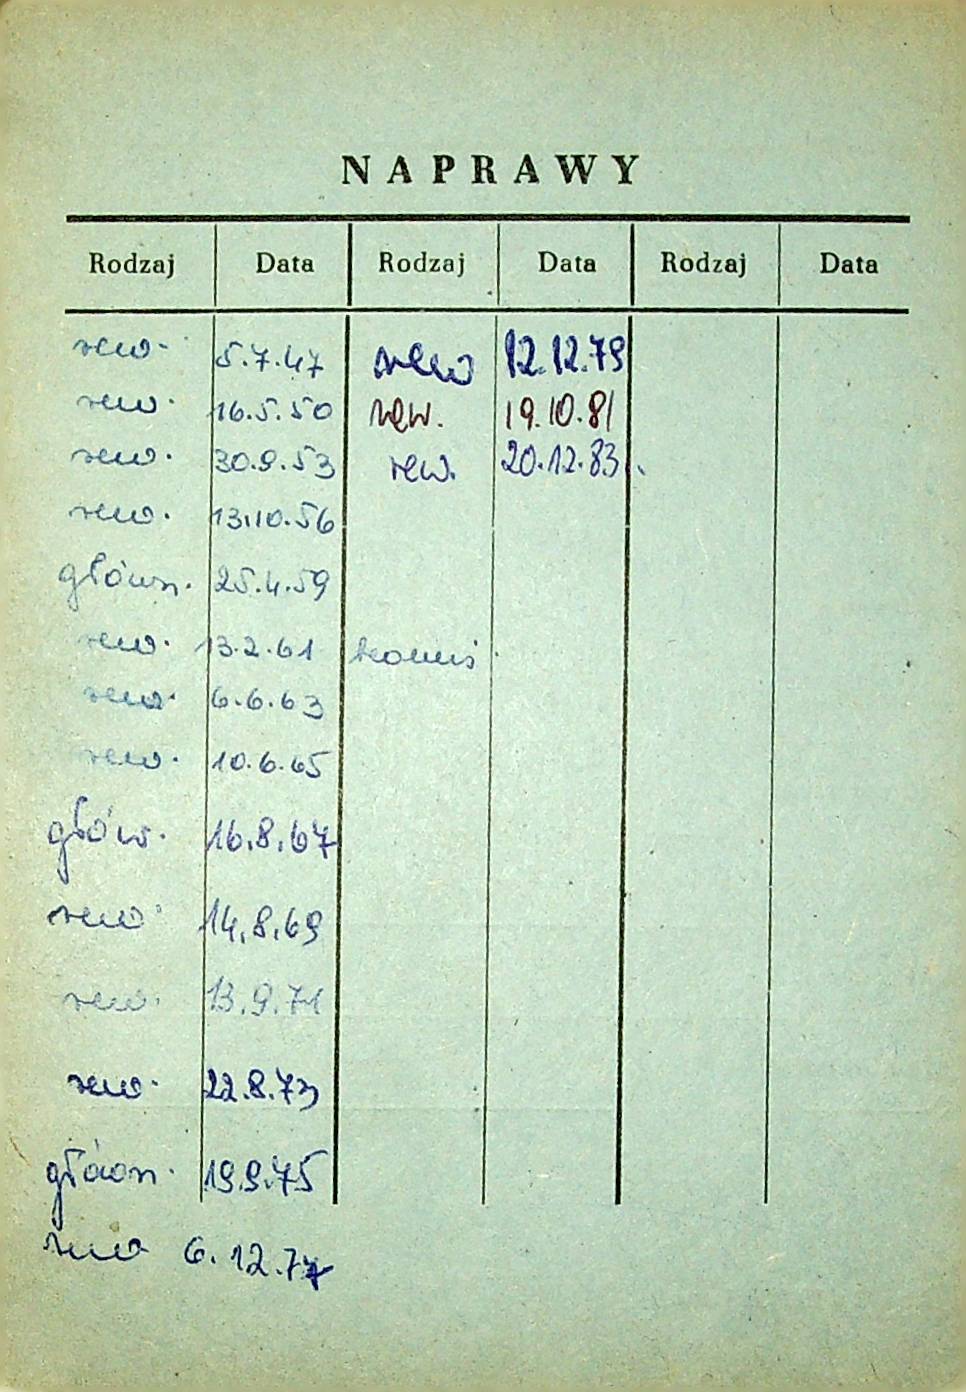 NAPRAWY
Rodzaj Data Rodzaj Data Rodzaj Data
rew. 5.7.47 rew 12.12.79
rew. 16.5.50 rew. 19.10.81
rew. 30.9.53 rew. 20.12.83
rew. 13.10.56
główn. 25.4.59
rew. 13.2.61
rew. 6.6.63
rew. 10.6.65
głów. 16.8.67
rew. 14.8.69
rew. 13.9.71
rew. 22.8.73
główn. 19.9.75
rew 6.12.77